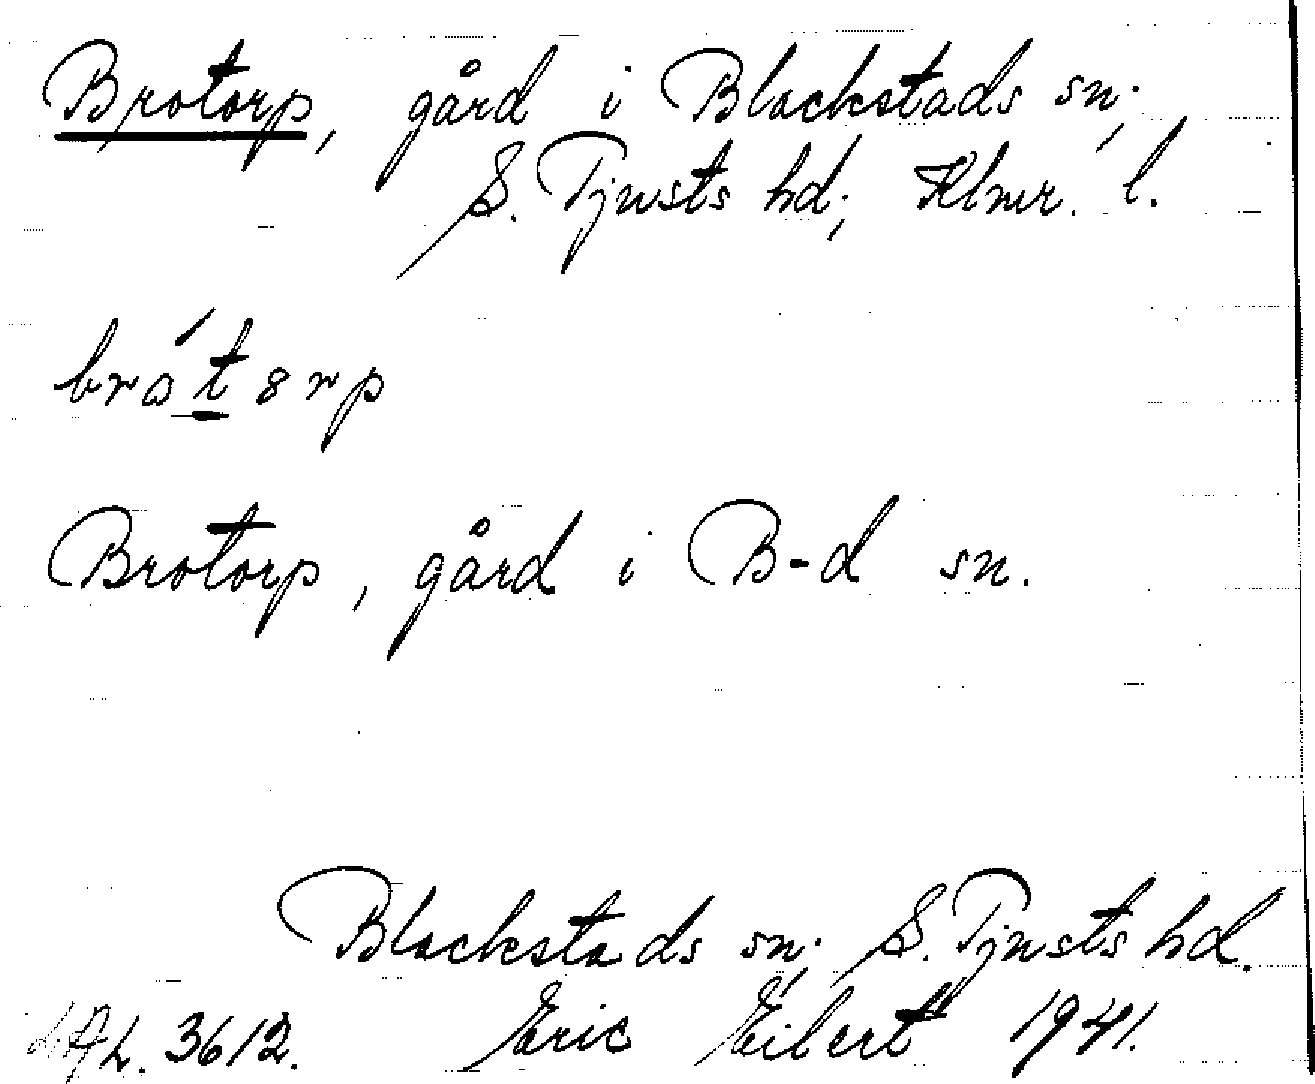 Brotorp, gård i Blackstads sn;
S. Tjusts hd; Klmr. l.
brót8rp
Brotorp, gård i B-d sn.
Blackstads sn; S. Tjusts hd.
3612. Eric Eilert 1941.